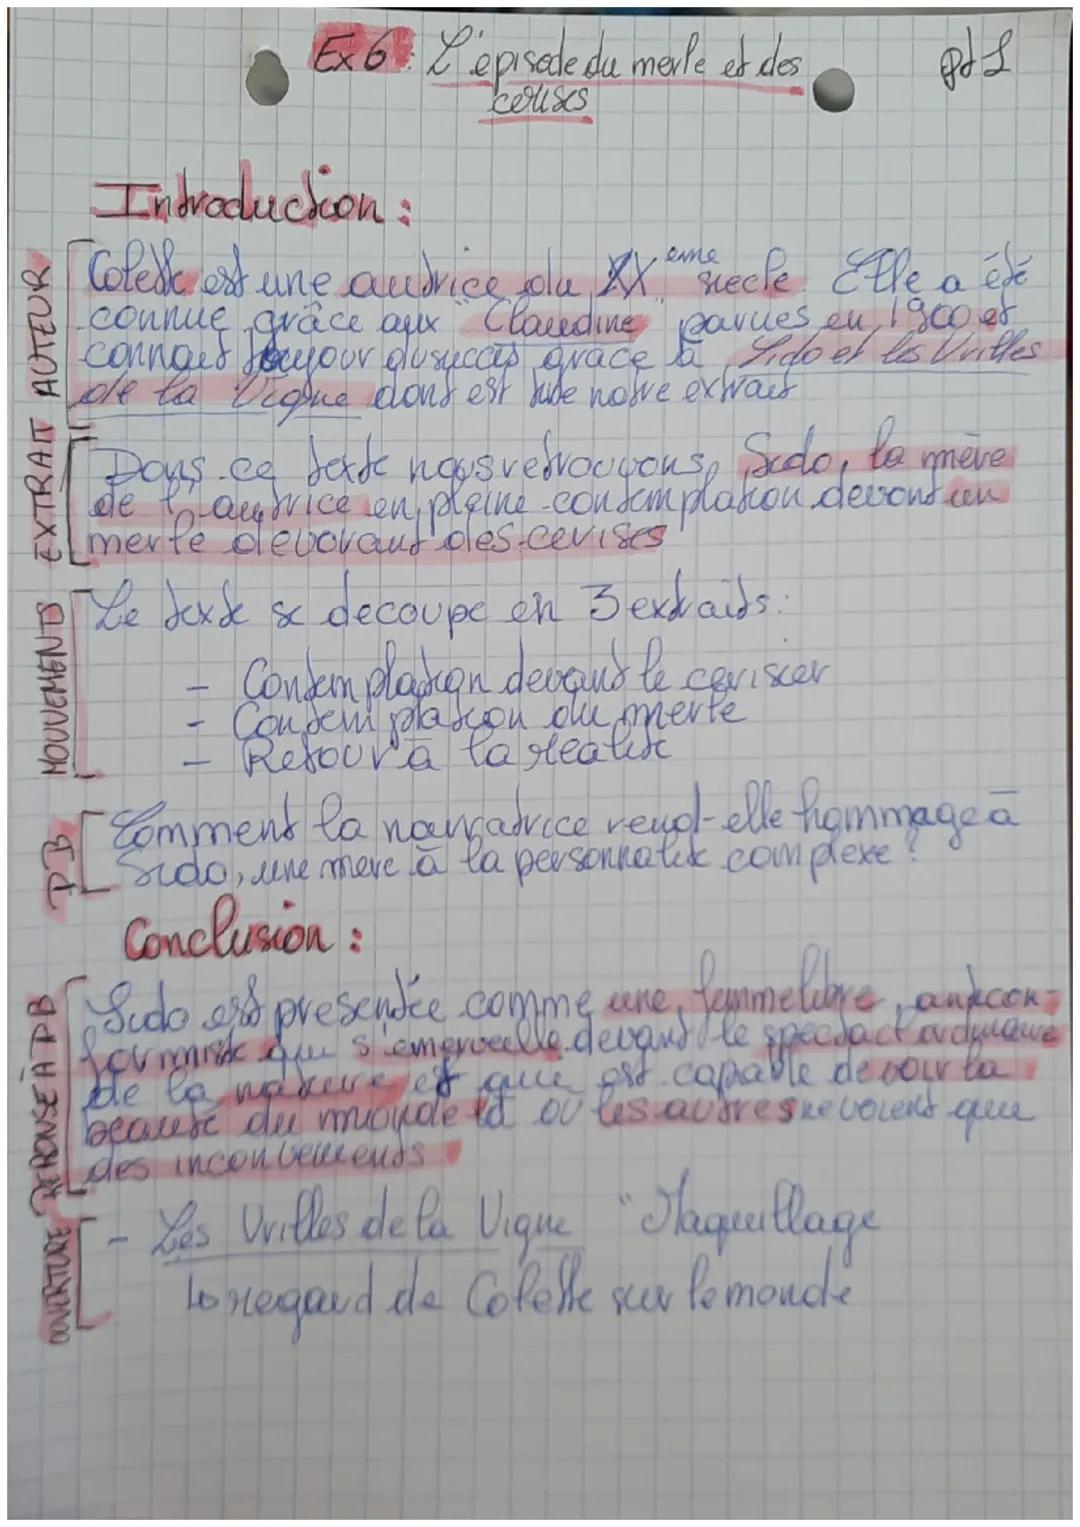 Ex 6: L'épisode du merle et des
cerises
Introduction :
AUTEUR
Colette est une autrice du XXème siecle. Elle a été
connue grâce aux "Claudine" parues en 1900 et
connait toujour du succès grâce à Sido et les Vrilles
de la Vigne dont est tiré notre extrait
EXTRAIT
Dans ce texte nous retrouvons, Sido, la mère
de l'autrice en pleine contemplation devant un
merle devorant des cerises
MOUVEMENTS
Le texte se decoupe en 3 extraits:
- Contemplation devant le cerisier
- Contemplation du merle
- Retour à la réalité
PB
Comment la narratrice rend-elle hommage à
Sido, une mere à la personnalité complexe ?
Conclusion :
REPONSE À PB
Sido est presentée comme une femme libre, anticon-
formiste qui s'emerveille devant le spectacl ordinaire
de la nature et qui est capable de voir la
beauté du monde là où les autres ne voient que
des inconvenients
OUVERTURE
- Les Vrilles de la Vigne "Maquillage
↳ regard de Colette sur le monde